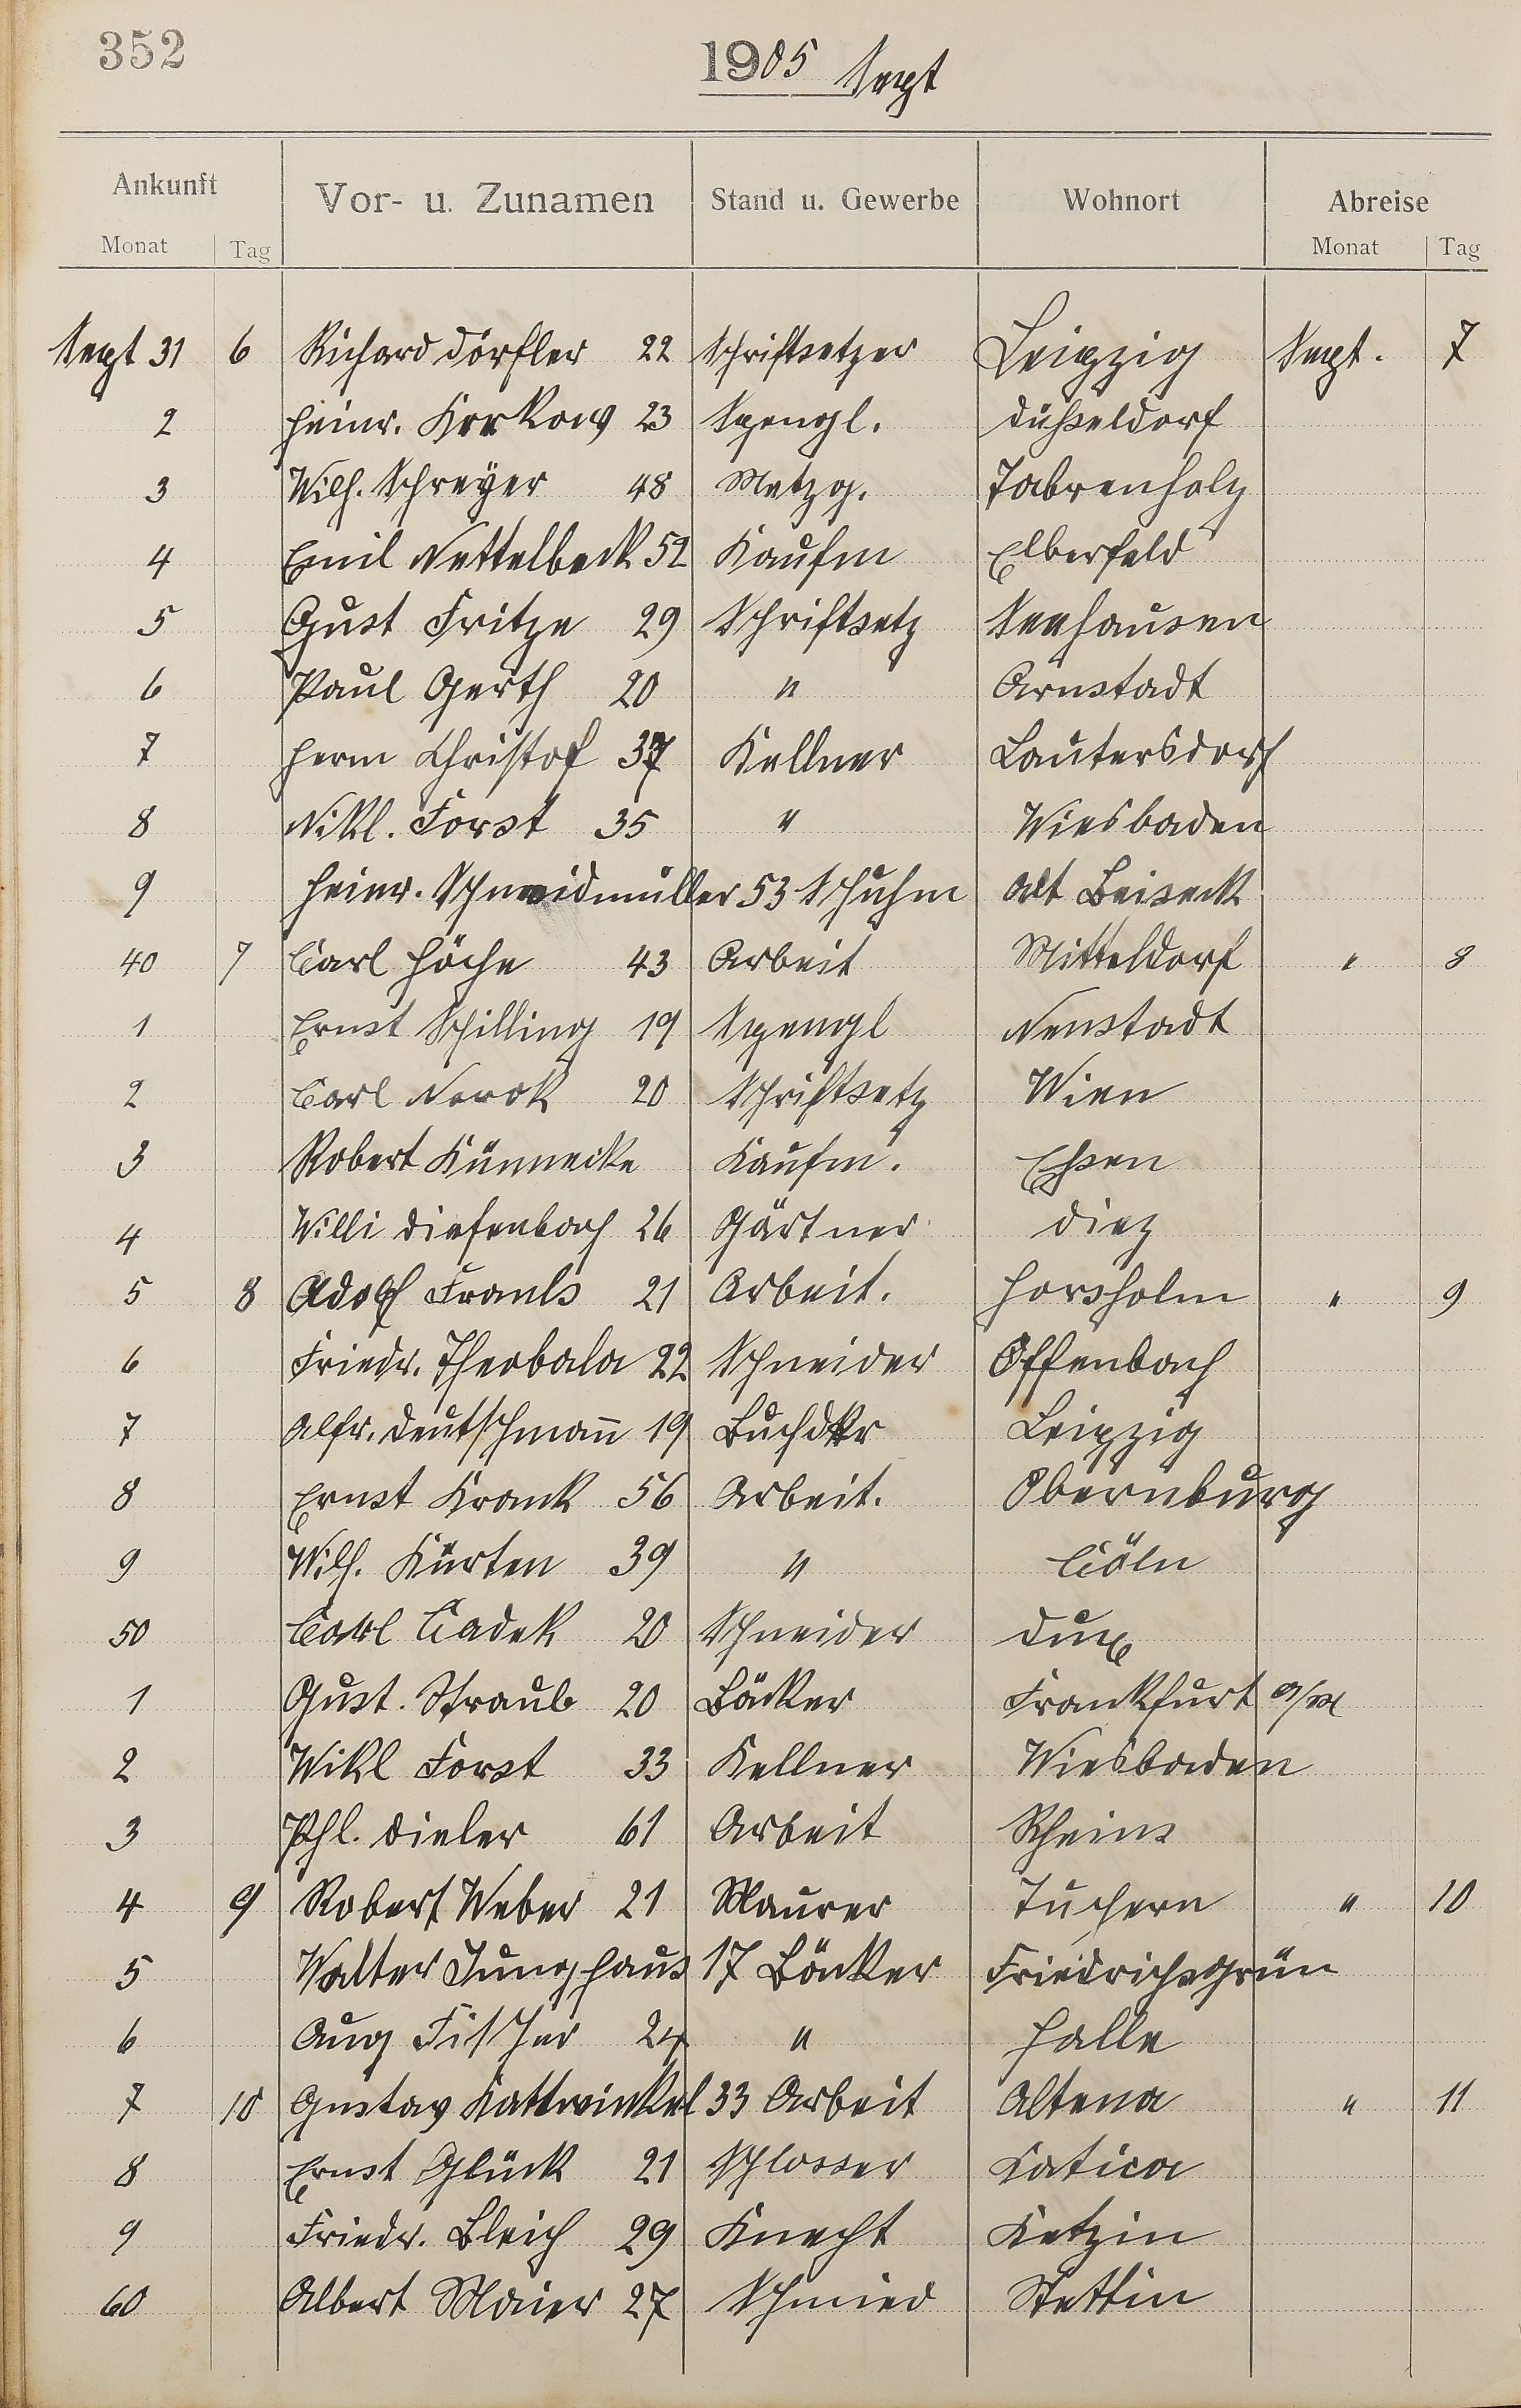 352
1905 Sept
Ankunft Vor- u. Zunamen Stand u. Gewerbe Wohnort Abreise
Monat Tag Monat Tag
Sept 31 6 Richard Dörfler 22 Schriftsetzer Leipzig Sept. 7
2 Heinr. Korkow 23 Spengl. Düsseldorf
3 Wilh. Schreyer 48 Metzg. Tabrenholz
4 Emil Nettelbeck 52 Kaufm Elberfeld
5 Gust Fritze 29 Schriftsetz Seehausen
6 Paul Gerth 20 " Arnstadt
7 Herm Christof 37 Kellner Lautersdorf
8 Nikl. Forst 35 " Wiesbaden
9 Heinr. Schmidmüller 53 Schuhm Alt Beiseck
40 7 Carl Höche 43 Arbeit Mitteldorf " 8
1 Ernst Schilling 19 Spengl Neustadt
2 Carl Novok 20 Schriftsetz Wien
3 Robert Künnecke Kaufm. Essen
4 Willi Diefenbach 26 Gärtner Diez
5 8 Adolf Franls 21 Arbeit. Horsholm " 9
6 Friedr. Theobala 22 Schneider Offenbach
7 Alfr. Deutschmann 19 Buchdkr Leipzig
8 Ernst Krank 56 Arbeit. Obernburg
9 Wilh. Kürten 39 " Cöln
50 Carl Cadek 20 Schneider Dux
1 Gust. Straub 20 Bäcker Frankfurt a/M
2 Nikl Forst 33 Kellner Wiesbaden
3 Phl. Dieler 61 Arbeit Rheins
4 9 Robert Weber 21 Maurer Tuchern " 10
5 Walter Junghaus 17 Bäcker Friedrichsgrün
6 Aug Fischer 24 " Halle
7 10 Gustav Kattwinkel 33 Arbeit Altena " 11
8 Ernst Glück 21 Schlosser Katica
9 Friedr. Bleich 29 Knecht Ketzin
60 Albert Maier 27 Schmied Stettin